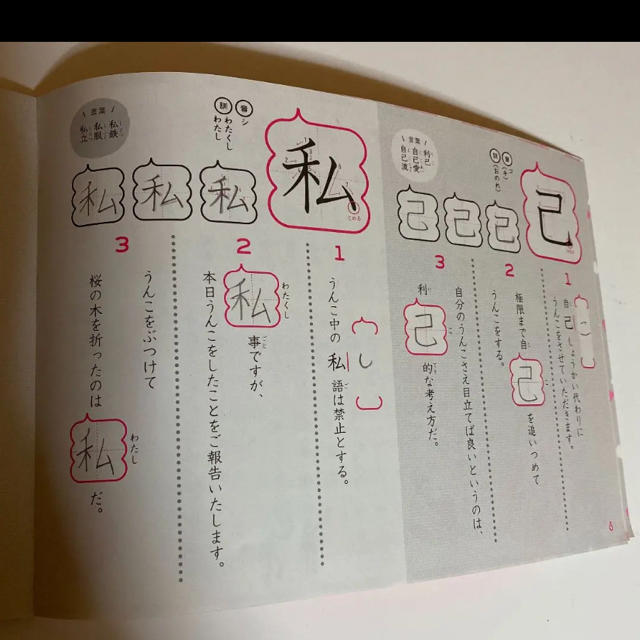 己
音
コ
(キ)
訓
(おのれ)
言葉
利己
自己愛
自己流
己
己
己
1
自己しょうかい代わりに
うんこをさせていただきます。
こ
2
極限まで自己を追いつめて
うんこをする。
3
自分のうんこさえ目立てば良いというのは、
利己的な考え方だ。
私
とめる
音
シ
訓
わたくし
わたし
言葉
私鉄
私服
私立
私
私
私
1
うんこ中の私語は禁止とする。
し
2
わたくし
私事ですが、
本日うんこをしたことをご報告いたします。
3
うんこをぶつけて
桜の木を折ったのは私だ。
わたし